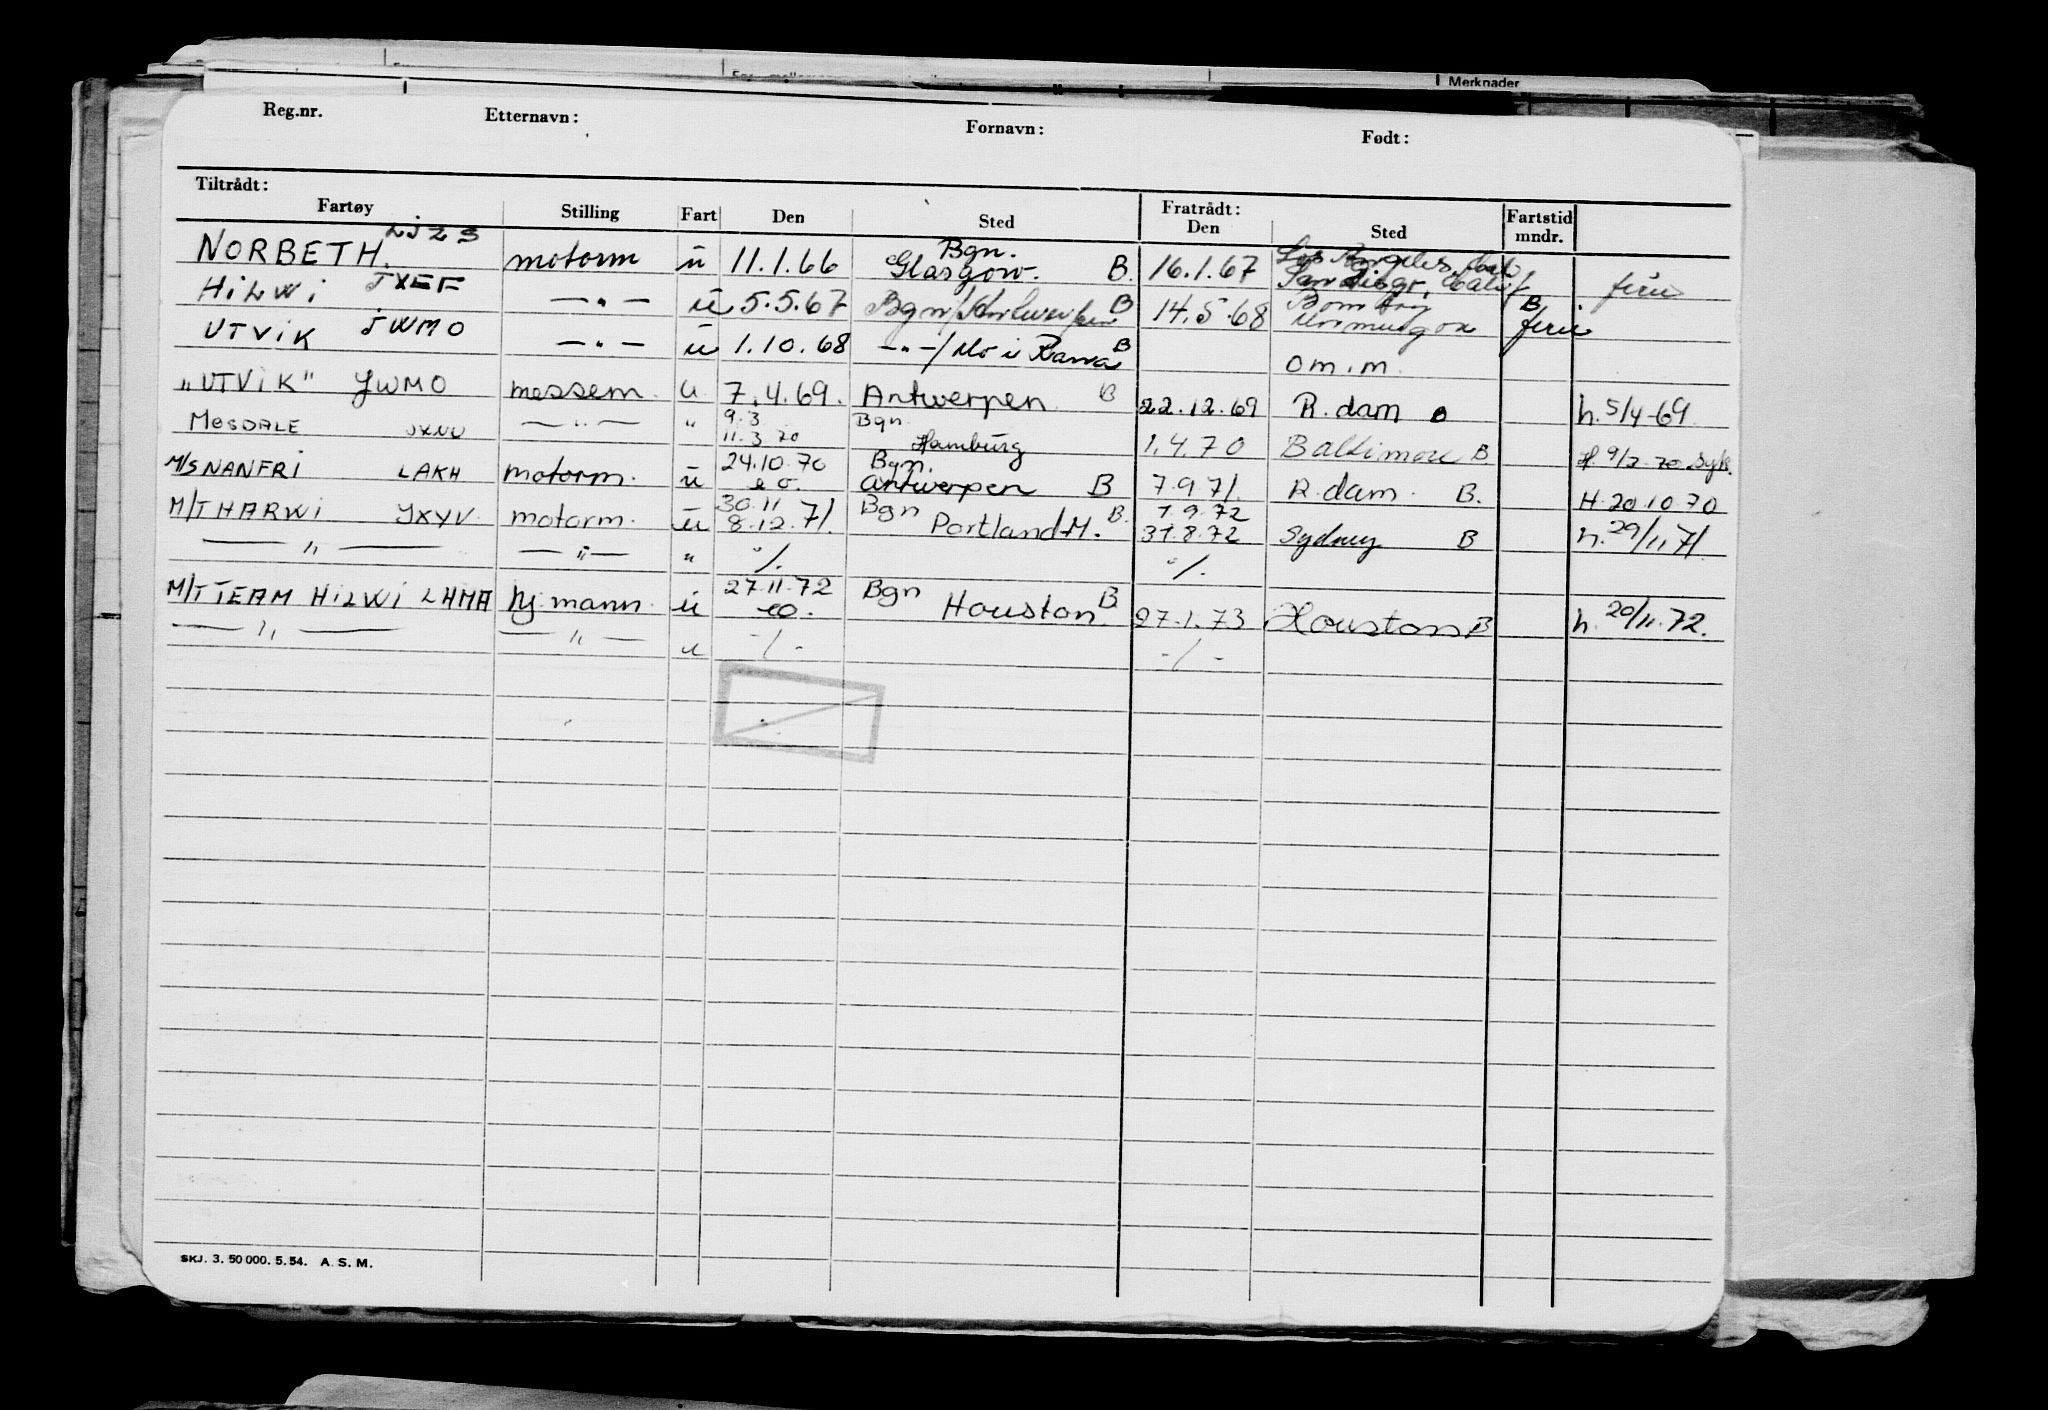 Merknader
Reg.nr. Etternavn: Fornavn: Født:
Tiltrådt: Fratrådt:
Fartøy Stilling Fart Den Sted Den Sted Fartstid mndr.
NORBETH. LJZS motorm ü 11.1.66 Bgn. Glasgow. B. 16.1.67 Los Angeles, Cal San Diego, Calif ferie
HiLWi JXEF —"— ü 5.5.67 Bgn/Antwerpen B 14.5.68 Bombay B ferie
UTViK JWMO —"— ü 1.10.68 —"—/Mo i Rana B om.m.
"UTViK" JWMO messem. u 7.4.69. Antwerpen B 22.12.69 R.dam B h.5/4-69
MOSDALE —"— " 9.3 11.3.70 Bgn. Hamburg 1.4.70 Baltimore B H.9/3.70 Syk.
M/S NANFRi LAKH motorm. ü 24.10.70 eo. Bgn. Antwerpen B 7.9.71. R.dam. B. H.20.10.70
M/T HARWi JXYV motorm. ü 30.11 8.12.71. Bgn Portland.M. B. 1.9.72 31.8.72 Sydney B h.29/11.71.
—"— —"— " ·/. ·/.
M/T TEAM HiLWi LHMA hj.mann. ü 27.11.72 eo. Bgn Houston. B 27.1.73 Houston B h.20/11.72.
—"— —"— u -/- -/-
SKJ. 3. 50 000. 5. 54. A. S. M.